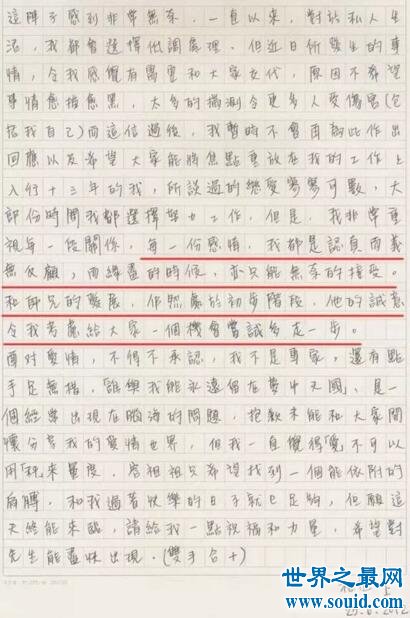 這陣子感到非常無奈,一直以來,對於私人生
活,我都會選擇低調處理,但近日所發生的事
情,令我感覺有需要和大家交代,原因不希望
事情愈描愈黑,太多的揣測令更多人受傷害(包
括我自己)而這信過後,我暫時不會再就此作出
回應以及希望大家能將焦點重放在我的工作上
入行十三年的我,所談過的戀愛寥寥可數,大
部份時間我都選擇努力工作,但是,我非常重
視每一段關係,每一份感情,我都是認真而義
無反顧,而緣盡的時候,亦只能無奈的接受。
和師兄的發展,仍然處於初步階段,他的誠意
令我考慮給大家一個機會嘗試多走一步。
面對愛情,不得不承認,我不是專家,還有點
手足無措,「誰與我能永遠留在夢中天國」,是一
個經常出現在腦海的問題,抱歉未能和大家開
懷分享我的愛情世界,但我一直覺得「愛」不可以
用「秤」來量度,容祖祖只希望找到一個能依附的
肩膊,和我過著快樂的日子就已足夠,但願這
天終能來臨,請給我一點祝福和力量,希望對
先生能盡快出現。(雙手合十)
上
25.6.2012
世界之最网
www.souid.com